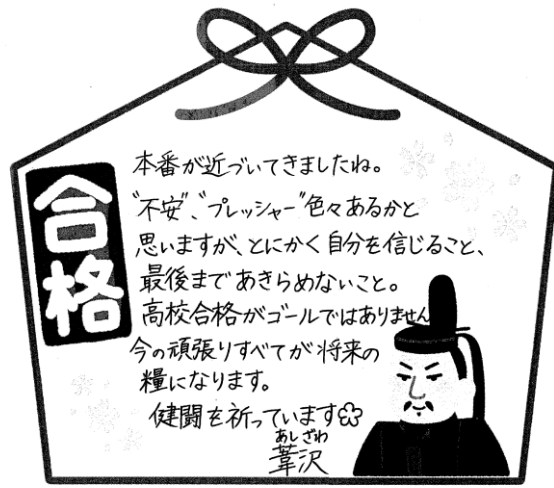 合格
本番が近づいてきましたね。
"不安"、"プレッシャー"色々あるかと
思いますが、とにかく自分を信じること、
最後まであきらめないこと。
高校合格がゴールではありません
今の頑張りすべてが将来の
糧になります。
健闘を祈っています
あしざわ
葦沢